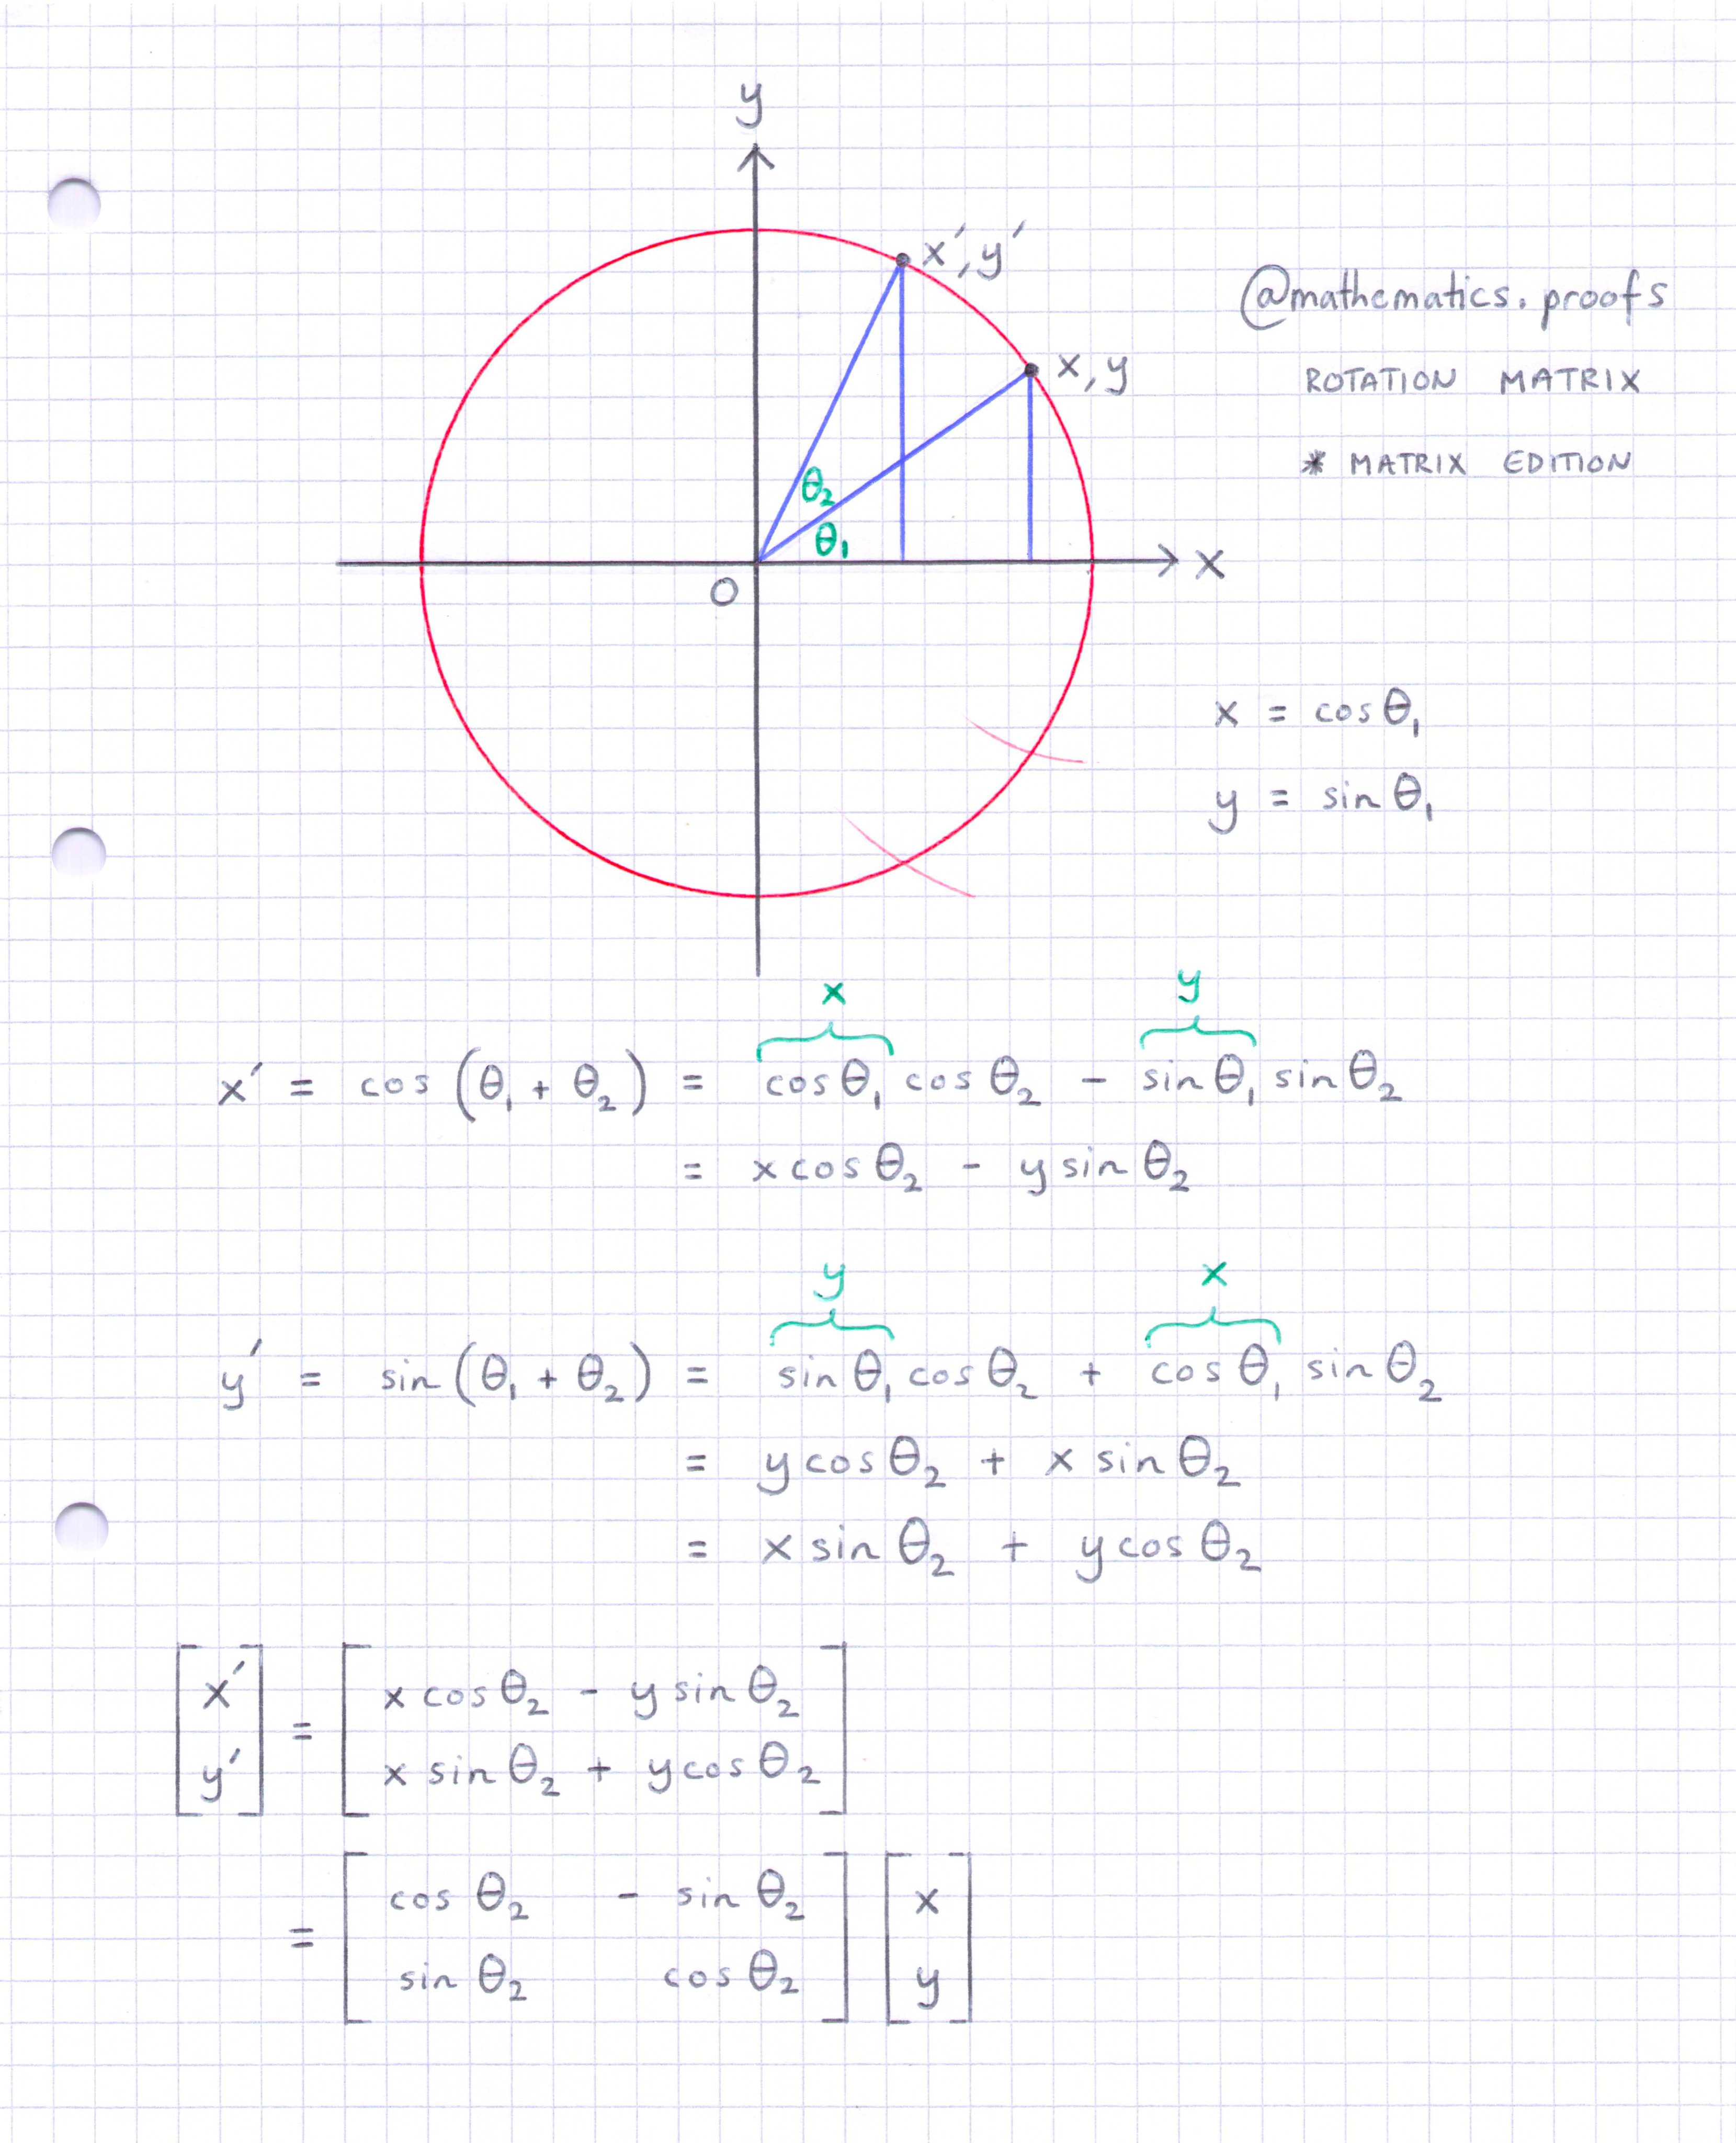 y
x′, y′
@mathematics.proofs
x, y
ROTATION MATRIX
* MATRIX EDITION
θ₂
θ₁
x
O
x = cos θ₁
y = sin θ₁
x y
x′ = cos (θ₁ + θ₂) = cos θ₁ cos θ₂ - sin θ₁ sin θ₂
= x cos θ₂ - y sin θ₂
y x
y′ = sin (θ₁ + θ₂) = sin θ₁ cos θ₂ + cos θ₁ sin θ₂
= y cos θ₂ + x sin θ₂
= x sin θ₂ + y cos θ₂
[x′] = [x cos θ₂ - y sin θ₂]
[y′] [x sin θ₂ + y cos θ₂]
= [cos θ₂ - sin θ₂] [x]
[sin θ₂ cos θ₂] [y]